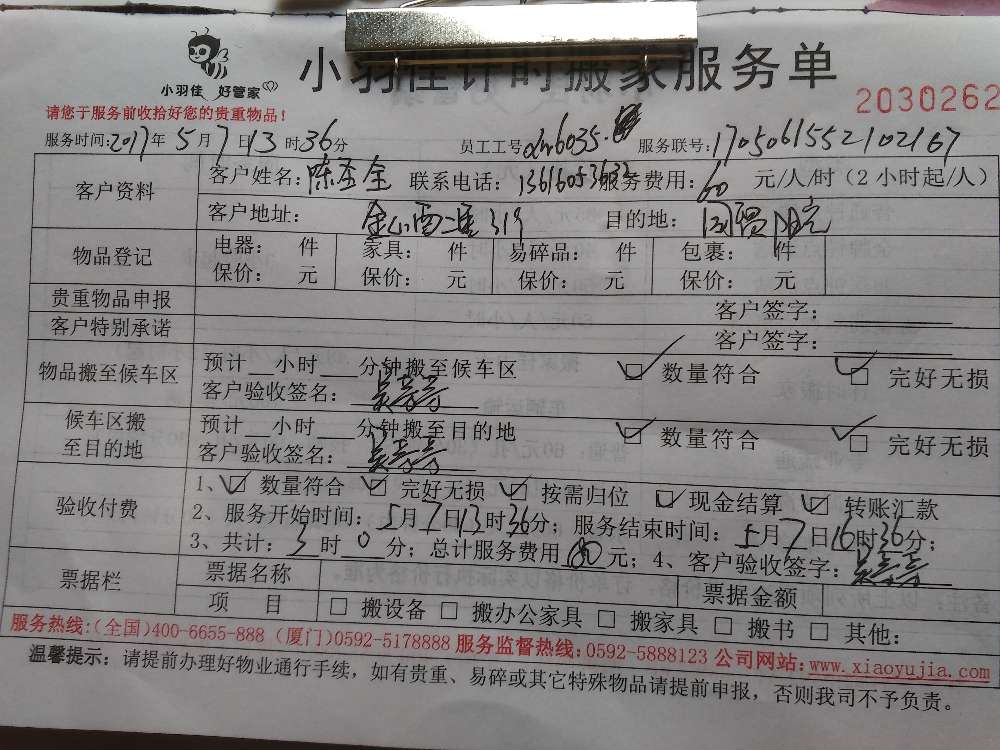 小羽佳 好管家
小羽佳计时搬家服务单
2030262
请您于服务前收拾好您的贵重物品！
服务时间:2017年5月7日13时36分 员工工号 6035 服务联号:1705061552102167
客户资料 客户姓名: 联系电话: 服务费用:60元/人/时（2小时起/人）
客户地址: 319 目的地:
物品登记 电器: 件 家具: 件 易碎品: 件 包裹: 件
保价: 元 保价: 元 保价: 元 保价: 元
贵重物品申报 客户签字:
客户特别承诺 客户签字:
物品搬至候车区 预计__小时___分钟搬至候车区 ☑ 数量符合 ☑ 完好无损
客户验收签名:
候车区搬至目的地 预计__小时___分钟搬至目的地 ☑ 数量符合 ☑ 完好无损
客户验收签名:
验收付费 1、☑ 数量符合 ☑ 完好无损 ☑ 按需归位 ☑ 现金结算 ☑ 转账汇款
2、服务开始时间:5月7日13时36分；服务结束时间:5月7日16时36分；
3、共计:3时0分；总计服务费用 元；4、客户验收签字:
票据栏 票据名称 票据金额
项 目 □ 搬设备 □ 搬办公家具 □ 搬家具 □ 搬书 □ 其他:
服务热线:(全国)400-6655-888 (厦门)0592-5178888 服务监督热线:0592-5888123 公司网站:www.xiaoyujia.com
温馨提示：请提前办理好物业通行手续，如有贵重、易碎或其它特殊物品请提前申报，否则我司不予负责。